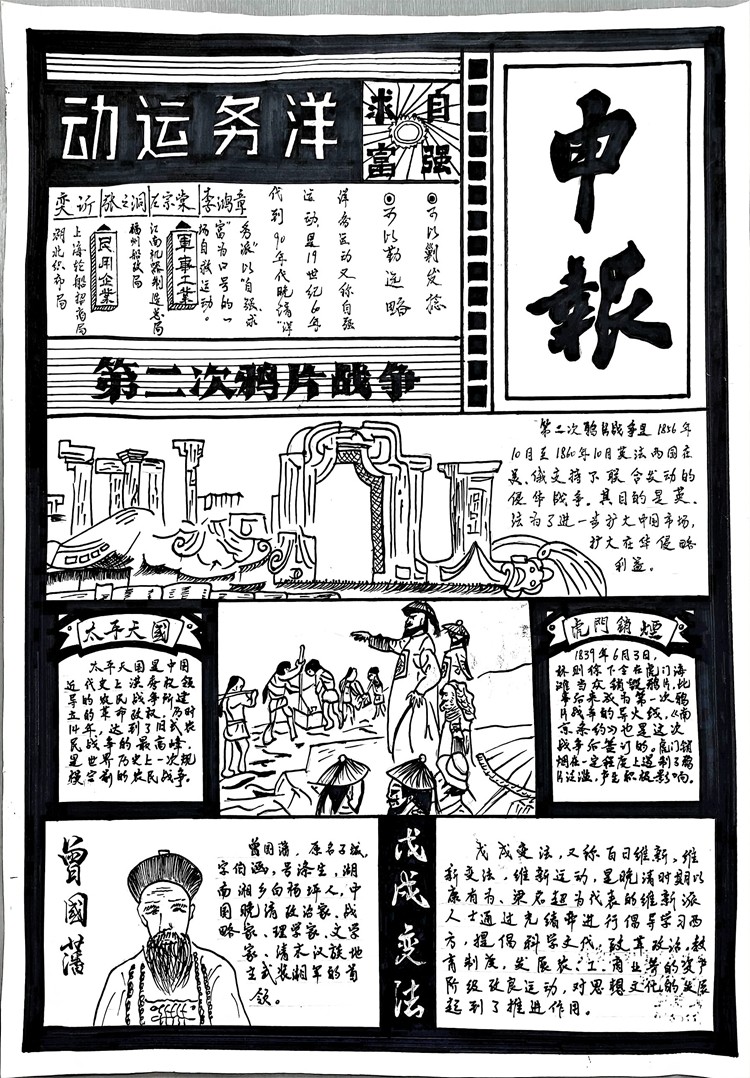 申報
洋务运动
自强
求富
◉可以剿发捻
◉可以勤远略
洋务运动又称自强
运动,是19世纪60年
代到90年代晚清"洋
务派"以"自强、求
富"为口号的一
场自救运动。
李鸿章
左宗棠
张之洞
奕訢
軍事工業
江南机器制造总局
福州船政局
民用企業
上海轮船招商局
湖北织布局
第二次鸦片战争
第二次鸦片战争是1856年
10月至1860年10月英法两国在
美、俄支持下联合发动的
侵华战争。其目的是英、
法为了进一步扩大中国市场,
扩大在华侵略
利益。
太平天國
太平天国是中国
近代史上洪秀全领
导的农民战争所建
立的革命政权,历时
14年,达到了旧式农
民战争的最高峰,
是世界历史上一次规
模空前的农民战争。
虎門銷煙
1839年6月3日,
林则徐下令在虎门海
滩当众销毁鸦片,此
事后来成为第一次鸦
片战争的导火线,《南
京条约》也是这次
战争后签订的。虎门销
烟在一定程度上遏制了鸦
片泛滥,产生积极影响。
曾國藩
曾国藩,原名子城,
字伯涵,号涤生,湖
南湘乡白杨坪人,中
国晚清政治家、战
略家、理学家、文学
家、清末汉族地
主武装湘军的首
领。
戊戌变法
戊戌变法,又称百日维新、维
新变法,维新运动,是晚清时期以
康有为、梁启超为代表的维新派
人士通过光绪帝进行倡导学习西
方,提倡科学文化,改革政治、教
育制度,发展农、工、商业等的资产
阶级改良运动,对思想文化的发展
起到了推进作用。